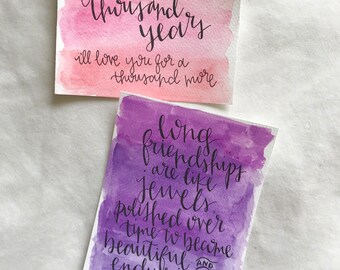 thousand
years
i'll love you for a
thousand more
long
friendships
are like
jewels
polished over
time to become
beautiful AND